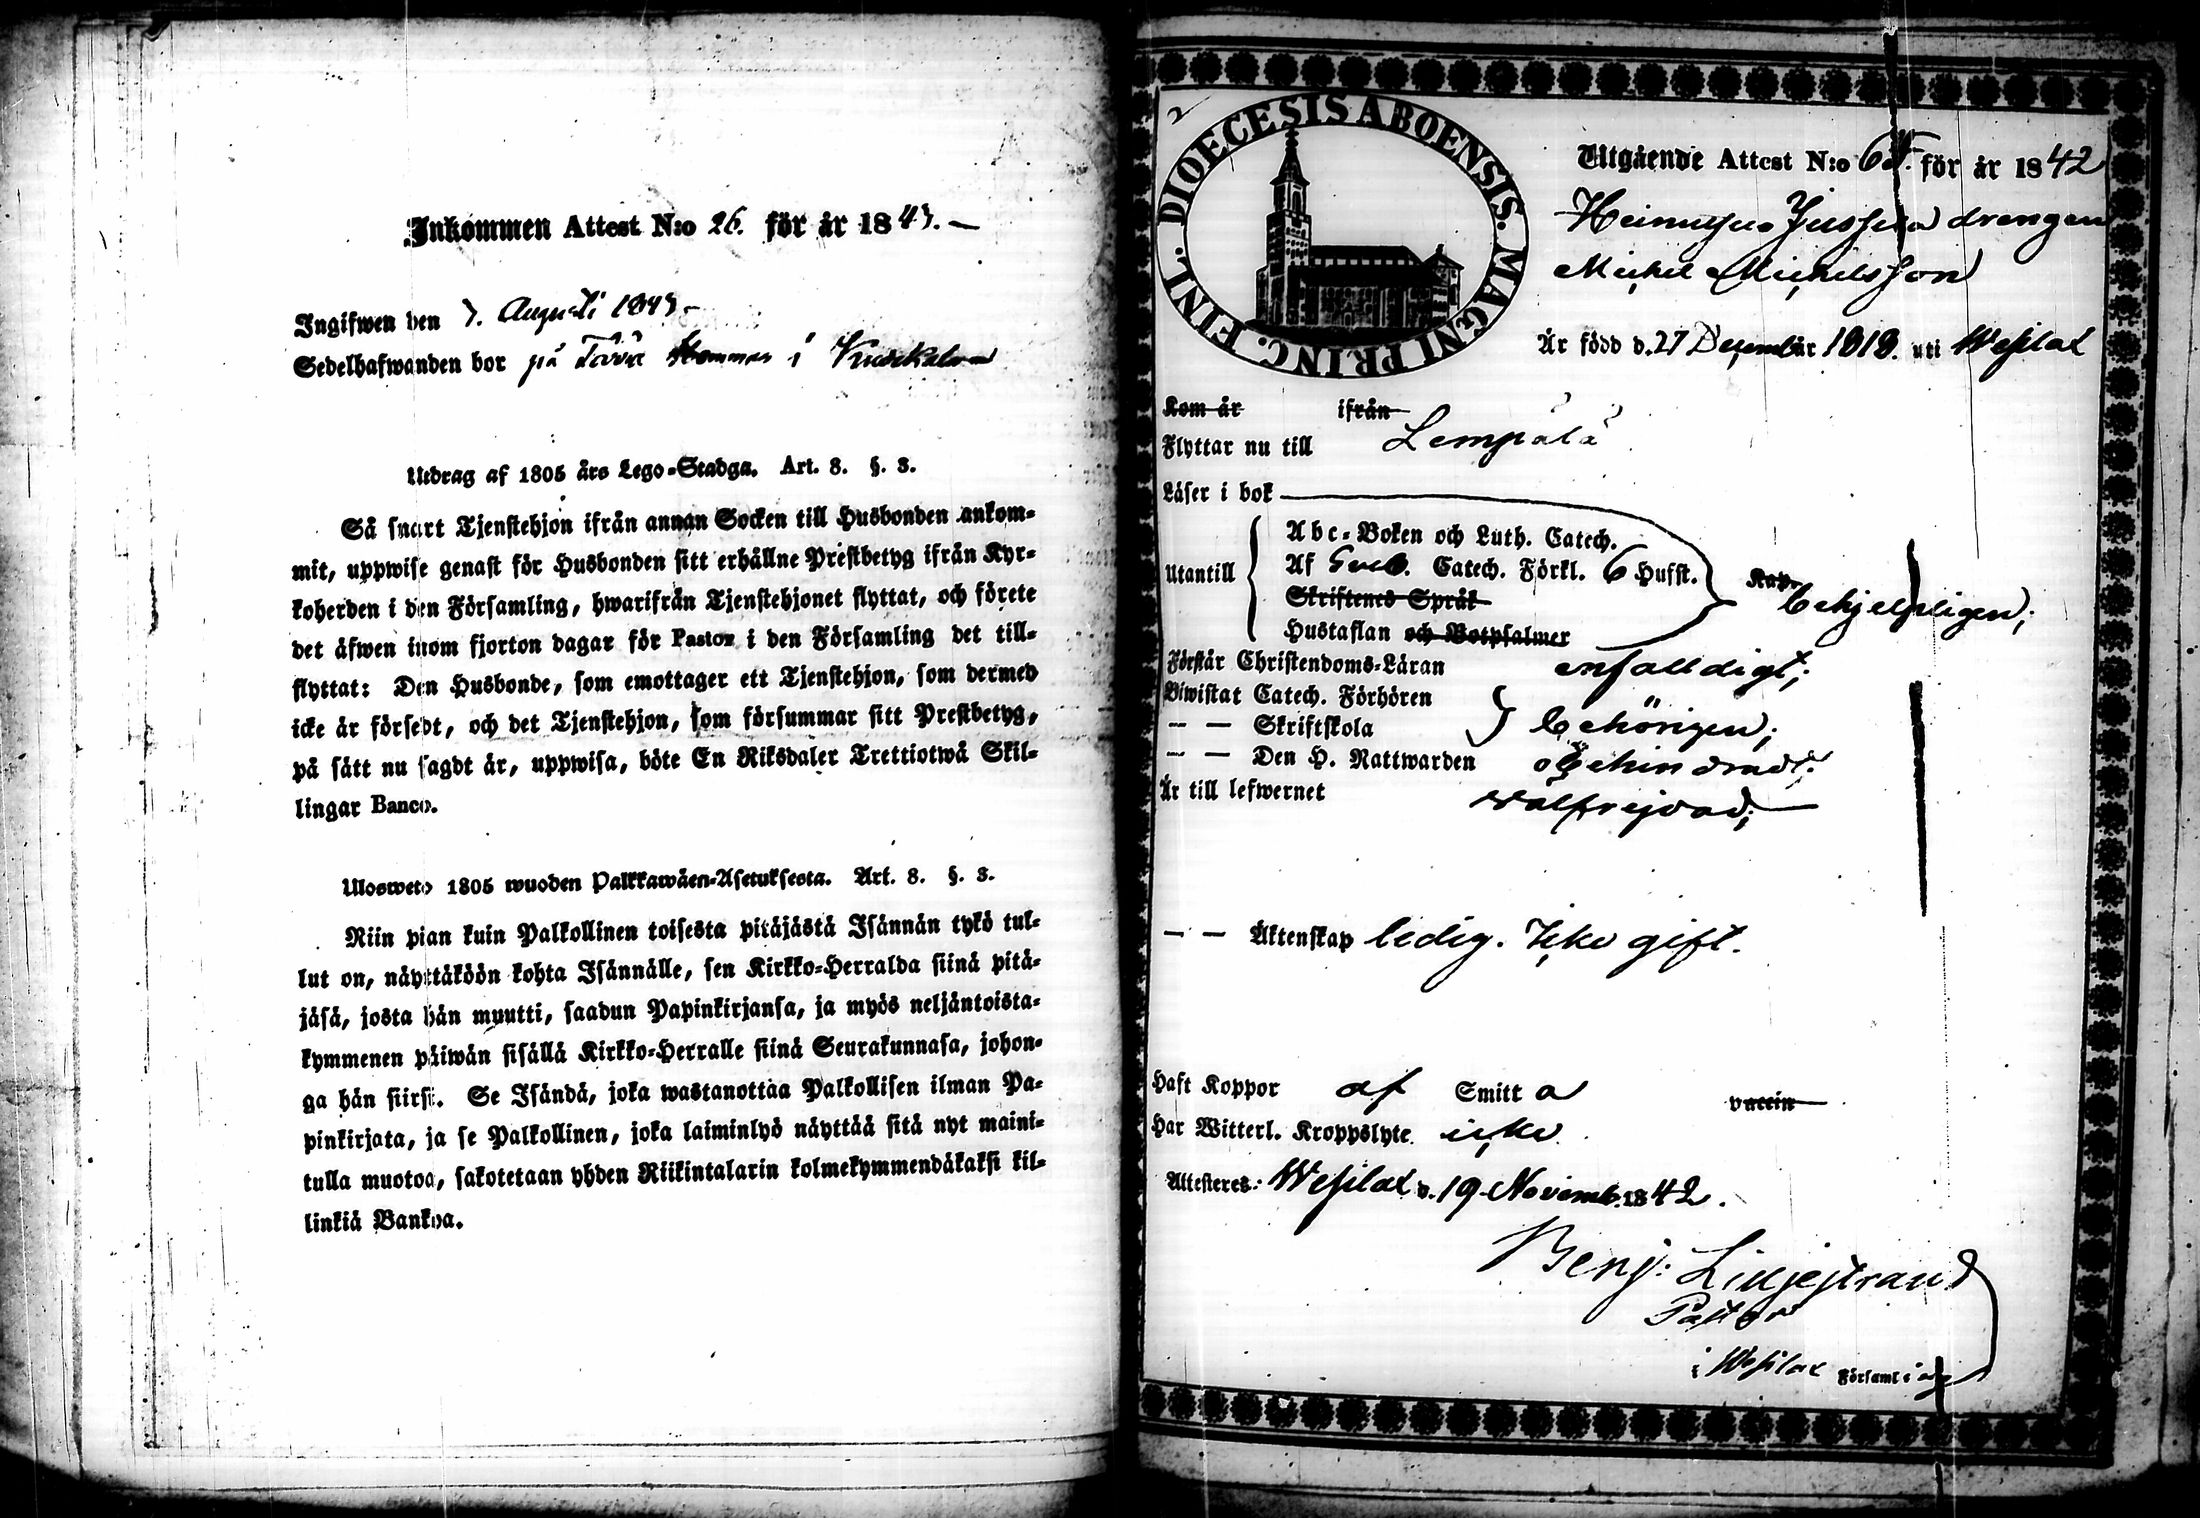 Inkommen Attest N:o 26. för år 1843. —
Ingifwen den 7. Augusti 1843 –
Sedelhafwanden bor på i Kuckalan
Utdrag af 1805 års Lego-Stadga. Art. 8. §. 3.
Så snart Tjenstehjon ifrån annan Socken till Husbonden ankom-
mit, uppwise genast för Husbonden sitt erhållne Prestbetyg ifrån Kyr-
koherden i den Församling, hwarifrån Tjenstehjonet flyttat, och förete
det äfwen inom fjorton dagar för Pastor i den Församling det till-
flyttat: Den Husbonde, som emottager ett Tjenstehjon, som dermed
icke är försedt, och det Tjenstehjon, som försummar sitt Prestbetyg,
på sätt nu sagdt är, uppwisa, böte En Riksdaler Trettiotwå Skil-
lingar Banco.
Ulosweto 1805 wuoden Palkkawäen-Asetuksesta. Art. 8. §. 3.
Niin pian kuin Palkollinen toisesta pitäjästä Isännän tykö tul-
lut on, näyttäköön kohta Isännälle, sen Kirkko-Herralda siinä pitä-
jäsä, josta hän muutti, saadun Papinkirjansa, ja myös neljäntoista-
kymmenen päiwän sisällä Kirkko-Herralle siinä Seurakunnasa, johon-
ga hän siirsi. Se Isändä, joka wastanottaa Palkollisen ilman Pa-
pinkirjata, ja se Palkollinen, joka laiminlyö näyttää sitä nyt maini-
tulla muotoa, sakotetaan yhden Riikintalarin kolmekymmendäkaksi kil-
linkiä Bankoa.
DIOECESIS ABOENSIS. MAGNI PRINC. FINL.
Utgående Attest N:o för år 1842
drengen
Michel Michelsson
Är född d. 27 December 1818. uti Wesilax
Kom år ifrån
Flyttar nu till Lempälä
Läser i bok
Utantill
Abc-Boken och Luth. Catech.
Af Sveb. Catech. Förkl. 6 Hufst.
Skriftenes Språk
Hustaflan och Botpsalmer
behjelpligen;
Förstår Christendoms-Läran enfalldigt;
Biwistat Catech. Förhören
— — Skriftskola
behörigen;
— — Den H. Nattwarden obehindradt.
Är till lefwernet wälfrejdad;
— — Äktenskap ledig. Icke gift.
Haft Koppor af Smitta vaccin
Har Witterl. Kroppslyte icke
Attesteres: Wesilax d. 19 Novemb. 1842.
Benj: Liljestrand
Pastor
i Wesilax Församling